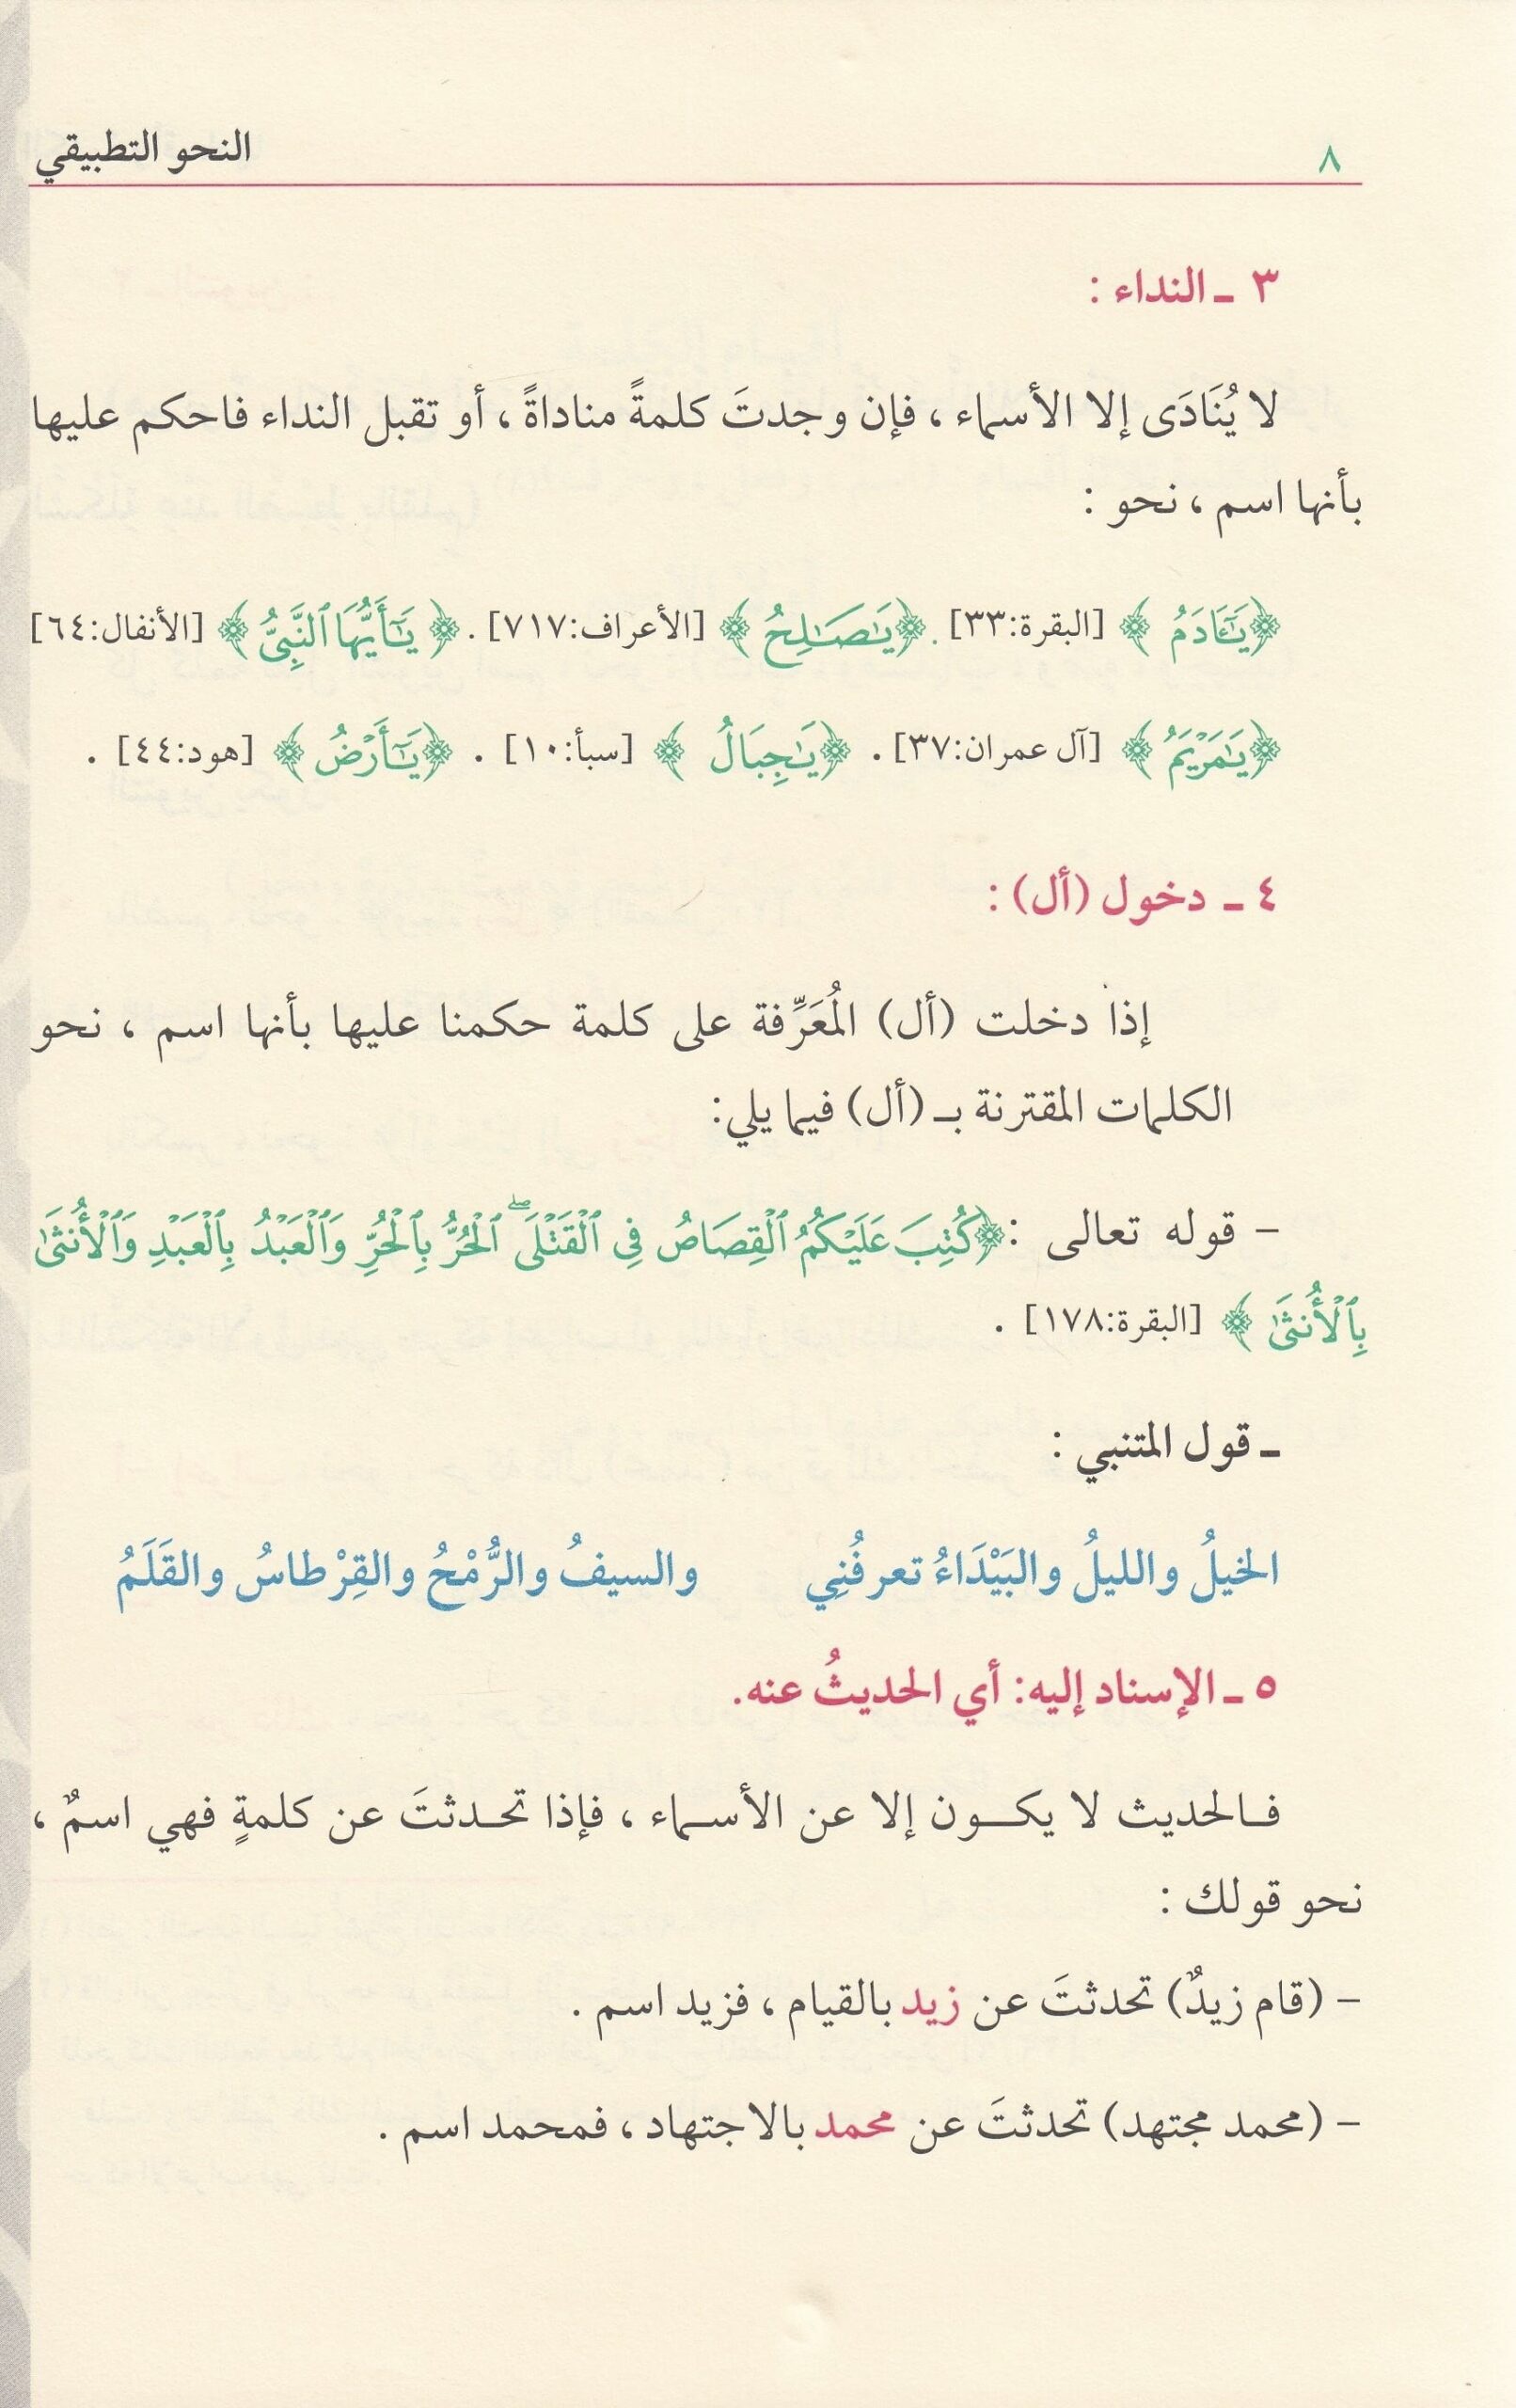 ٨ النحو التطبيقي
٣ ـ النداء :
لا يُنَادَى إلا الأسماء ، فإن وجدتَ كلمةً مناداةً ، أو تقبل النداء فاحكم عليها
بأنها اسم ، نحو :
﴿يَـٰٓـَٔادَمُ ﴾ [البقرة:٣٣] . ﴿يَـٰصَـٰلِحُ ﴾ [الأعراف:٧١٧] . ﴿ يَـٰٓأَيُّهَا ٱلنَّبِىُّ ﴾ [الأنفال:٦٤]
﴿يَـٰمَرْيَمُ ﴾ [آل عمران:٣٧] . ﴿يَـٰجِبَالُ ﴾ [سبأ:١٠] . ﴿يَـٰٓأَرْضُ ﴾ [هود:٤٤] .
٤ ـ دخول (أل) :
إذا دخلت (أل) المُعَرِّفة على كلمة حكمنا عليها بأنها اسم ، نحو
الكلمات المقترنة بـ (أل) فيما يلي:
– قوله تعالى :﴿كُتِبَ عَلَيْكُمُ ٱلْقِصَاصُ فِى ٱلْقَتْلَى ۖ ٱلْحُرُّ بِٱلْحُرِّ وَٱلْعَبْدُ بِٱلْعَبْدِ وَٱلْأُنثَىٰ
بِٱلْأُنثَىٰ ﴾ [البقرة:١٧٨] .
ـ قول المتنبي :
الخيلُ والليلُ والبَيْدَاءُ تعرفُنِي والسيفُ والرُّمْحُ والقِرْطاسُ والقَلَمُ
٥ ـ الإسناد إليه: أي الحديثُ عنه.
فـالحديث لا يكـــون إلا عن الأسـماء ، فإذا تحـدثتَ عن كلمةٍ فهي اسمٌ ،
نحو قولك :
– (قام زيدٌ) تحدثتَ عن زيد بالقيام ، فزيد اسم .
– (محمد مجتهد) تحدثتَ عن محمد بالاجتهاد ، فمحمد اسم .